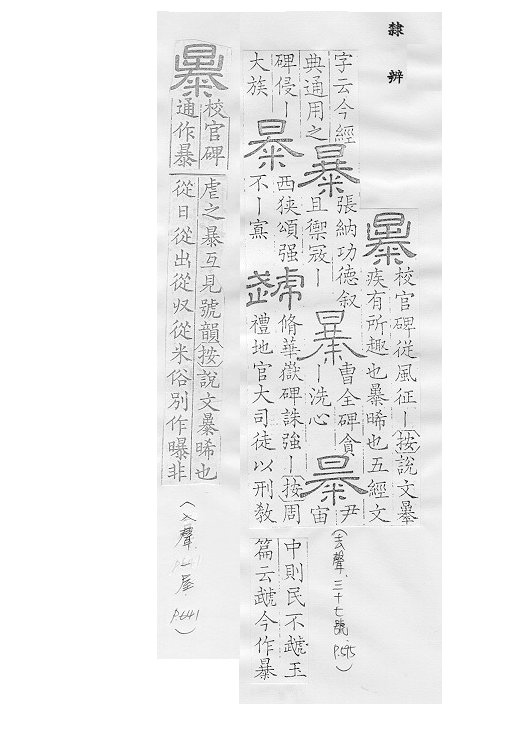 隸辨
㬥
校官碑從風征丨按說文㬥
疾有所趣也暴晞也五經文
字云今經
典通用之
暴
張納功德叙
且禦寇丨
暴
曹全碑貪
丨洗心
暴
尹
宙
碑侵丨
大族
暴
西狹頌强
不丨寡
虣
脩華嶽碑誅強丨按周
禮地官大司徒以刑教
中則民不虣玉
篇云虣今作暴
(去聲 三十七號 P.595)
㬥
校官碑
通作暴
虐之暴互見號韻按說文㬥晞也
從日從出從収從米俗別作曝非
(入聲 屋 P.641)